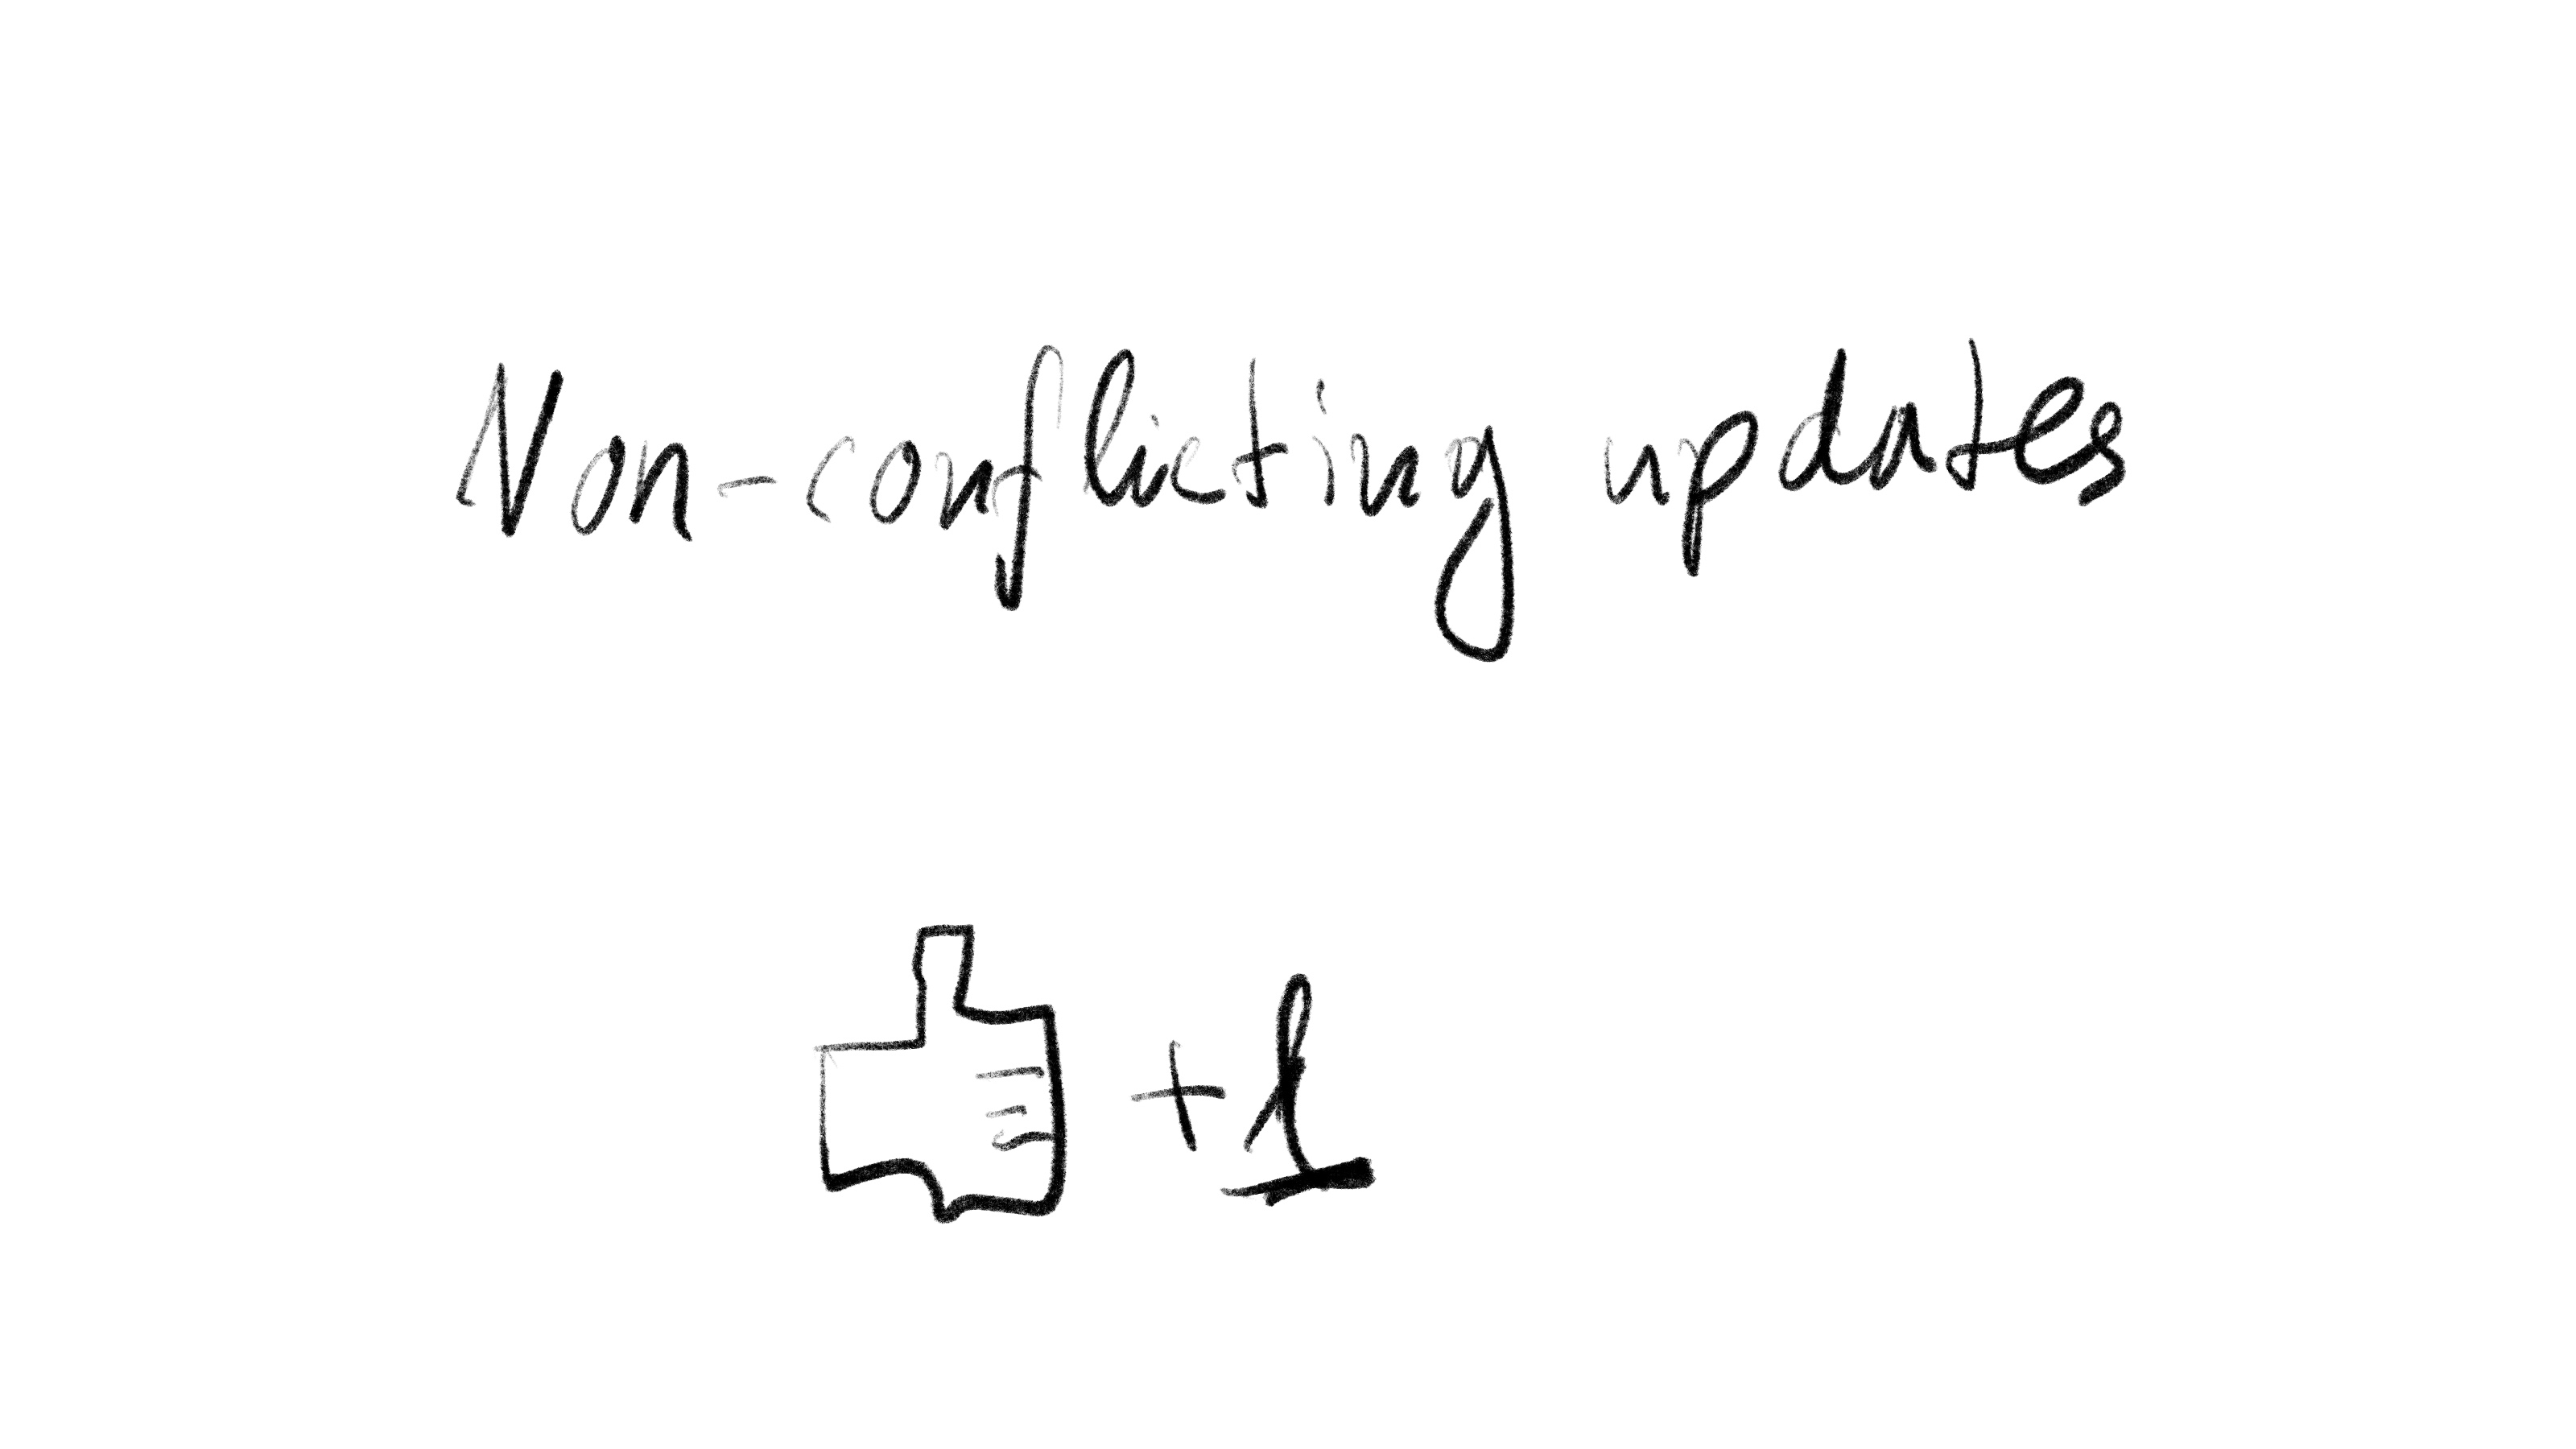 Non-conflicting updates
+1